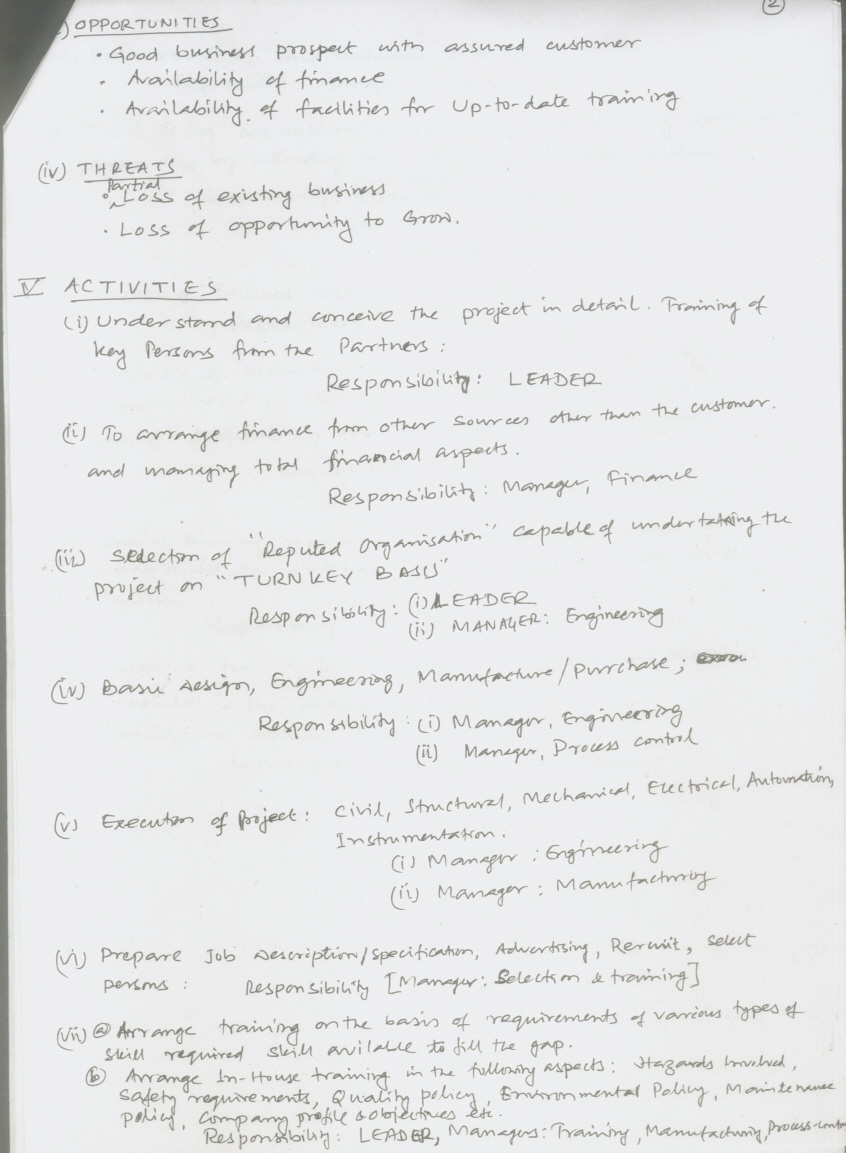 2
) OPPORTUNITIES
• Good business prospect with assured customer
• Availability of finance
• Availability of facilities for Up-to-date training
(iv) THREATS
Partial
• Loss of existing business
• Loss of opportunity to Grow.
IV ACTIVITIES
(i) Understand and conceive the project in detail. Training of
key Persons from the Partners :
Responsibility : LEADER
(ii) To arrange finance from other sources other than the customer.
and managing total financial aspects.
Responsibility : Manager, Finance
(iii) Selection of "Reputed Organisation" capable of undertaking the
project on "TURNKEY BASIS"
Responsibility : (i) LEADER
(ii) MANAGER: Engineering
(iv) Basic design, Engineering, Manufacture/Purchase ;
Responsibility : (i) Manager, Engineering
(ii) Manager, Process control
(v) Execution of Project : Civil, Structural, Mechanical, Electrical, Automation,
Instrumentation.
(i) Manager : Engineering
(ii) Manager : Manufacturing
(vi) Prepare Job Description/Specification, Advertising, Recruit, Select
persons : Responsibility [Manager: Selection & training]
(vii) (a) Arrange training on the basis of requirements of various types of
skill required skill avilable to fill the gap.
(b) Arrange In-House training in the following aspects : Hazards Involved,
Safety requirements, Quality policy, Environmental Policy, Maintenance
policy, Company profile & objectives etc.
Responsibility : LEADER, Managers: Training, Manufacturing, Process-contro